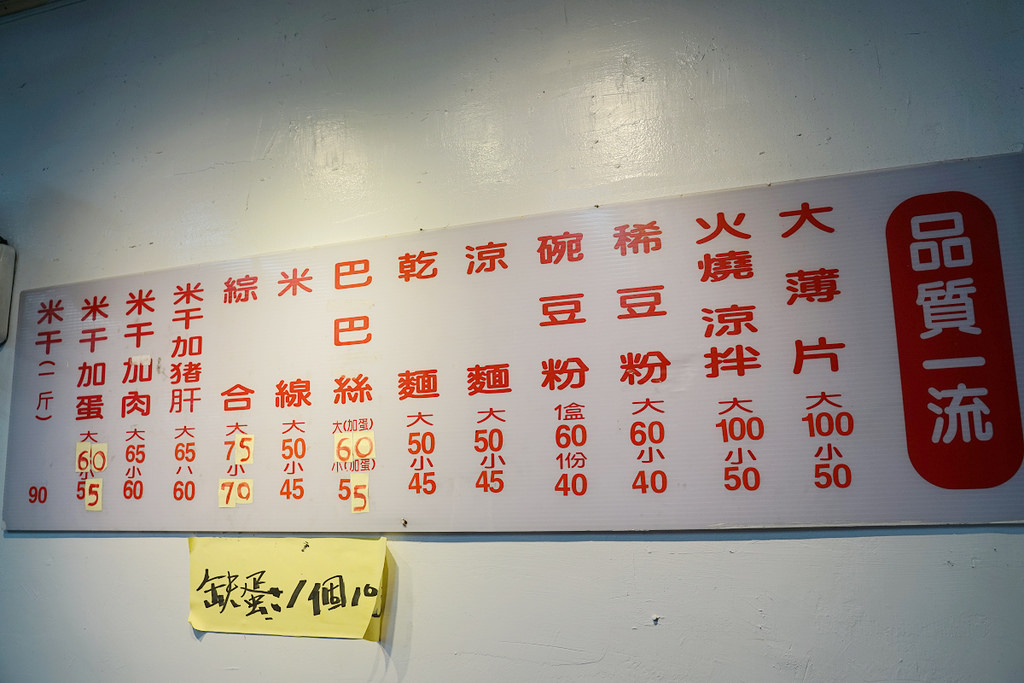 品質一流
大薄片 大100 小50
火燒涼拌 大100 小50
稀豆粉 大60 小40
碗豆粉 1盒60 1份40
涼麵 大50 小45
乾麵 大50 小45
巴巴絲 大(加蛋)60 小(加蛋)55
米線 大50 小45
綜合 大75 小70
米干加猪肝 大65 小60
米干加肉 大65 小60
米干加蛋 大60 小55
米干(一斤) 90
缺蛋:1個10